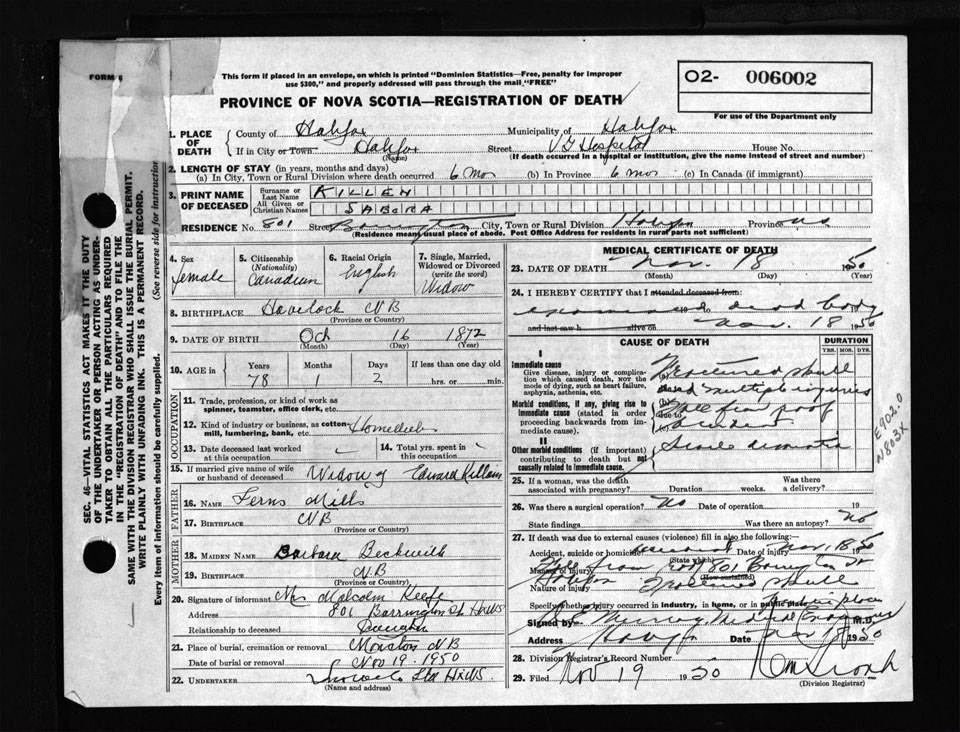 FORM 6
This form if placed in an envelope, on which is printed "Dominion Statistics—Free, penalty for improper
use $300," and properly addressed will pass through the mail "FREE"
PROVINCE OF NOVA SCOTIA—REGISTRATION OF DEATH
O2- 006002
For use of the Department only
1. PLACE OF DEATH
County of Halifax Municipality of Halifax
If in City or Town Halifax Street V G Hospital House No.
(Name) (If death occurred in a hospital or institution, give the name instead of street and number)
2. LENGTH OF STAY (in years, months and days)
(a) In City, Town or Rural Division where death occurred 6 mos (b) In Province 6 mos (c) In Canada (if immigrant)
3. PRINT NAME OF DECEASED
Surname or Last Name KILLEN
All Given or Christian Names SABORA
RESIDENCE No. 801 Street Barrington City, Town or Rural Division Halifax Province NS
(Residence means usual place of abode. Post Office Address for residents in rural parts not sufficient)
4. Sex female
5. Citizenship (Nationality) Canadian
6. Racial Origin English
7. Single, Married, Widowed or Divorced (write the word) Widow
8. BIRTHPLACE Havelock NB
(Province or Country)
9. DATE OF BIRTH Oct 16 1872
(Month) (Day) (Year)
10. AGE in Years Months Days If less than one day old
78 1 2 hrs. or min.
OCCUPATION
11. Trade, profession, or kind of work as spinner, teamster, office clerk, etc.
12. Kind of industry or business, as cotton-mill, lumbering, bank, etc.
13. Date deceased last worked at this occupation
14. Total yrs. spent in this occupation
15. If married give name of wife or husband of deceased Widow of Edward Killam
FATHER
16. NAME Mills
17. BIRTHPLACE NB
(Province or Country)
MOTHER
18. MAIDEN NAME Barbara Beckwith
19. BIRTHPLACE N.B
(Province or Country)
20. Signature of informant Mrs Malcolm Keefe
Address 801 Barrington St. Hx NS
Relationship to deceased Daughter
21. Place of burial, cremation or removal Moncton NB
Date of burial or removal Nov 19. 1950
22. UNDERTAKER Ltd Hx NS.
(Name and address)
MEDICAL CERTIFICATE OF DEATH
23. DATE OF DEATH Nov. 18 1950
(Month) (Day) (Year)
24. I HEREBY CERTIFY that I attended deceased from:
examined dead body
19 to 19
and last saw h alive on Nov. 18 1950
CAUSE OF DEATH
DURATION
YRS. MOS. DYS.
I
Immediate cause
Give disease, injury or complication which caused death, nor the mode of dying, such as heart failure, asphyxia, asthenia, etc.
(a) Fractured skull
and multiple injuries
Morbid conditions, if any, giving rise to immediate cause (stated in order proceeding backwards from immediate cause).
(b) due to Fall from roof
(c) accident
II
Other morbid conditions (if important) contributing to death but not causally related to immediate cause.
Senile dementia
E902.0
N803X
25. If a woman, was the death associated with pregnancy? Duration weeks. Was there a delivery?
26. Was there a surgical operation? No Date of operation 19
State findings Was there an autopsy? No
27. If death was due to external causes (violence) fill in also the following:—
Accident, suicide or homicide Accident Date of injury Nov. 18 50
(State which)
Manner of injury Fall from roof 801 Barrington St
Halifax (How sustained)
Nature of injury Fractured skull
Specify whether injury occurred in industry, in home, or in public place
Signed by Murray Medical Examiner M.D.
Address Halifax Date Nov 18 1950
28. Division Registrar's Record Number
29. Filed Nov 19 1950
(Division Registrar)
SEC. 46—VITAL STATISTICS ACT MAKES IT THE DUTY
OF THE UNDERTAKER OR PERSON ACTING AS UNDERTAKER TO OBTAIN ALL THE PARTICULARS REQUIRED
IN THE "REGISTRATION OF DEATH" AND TO FILE THE
SAME WITH THE DIVISION REGISTRAR WHO SHALL ISSUE THE BURIAL PERMIT.
WRITE PLAINLY WITH UNFADING INK. THIS IS A PERMANENT RECORD.
Every item of information should be carefully supplied. (See reverse side for instruction